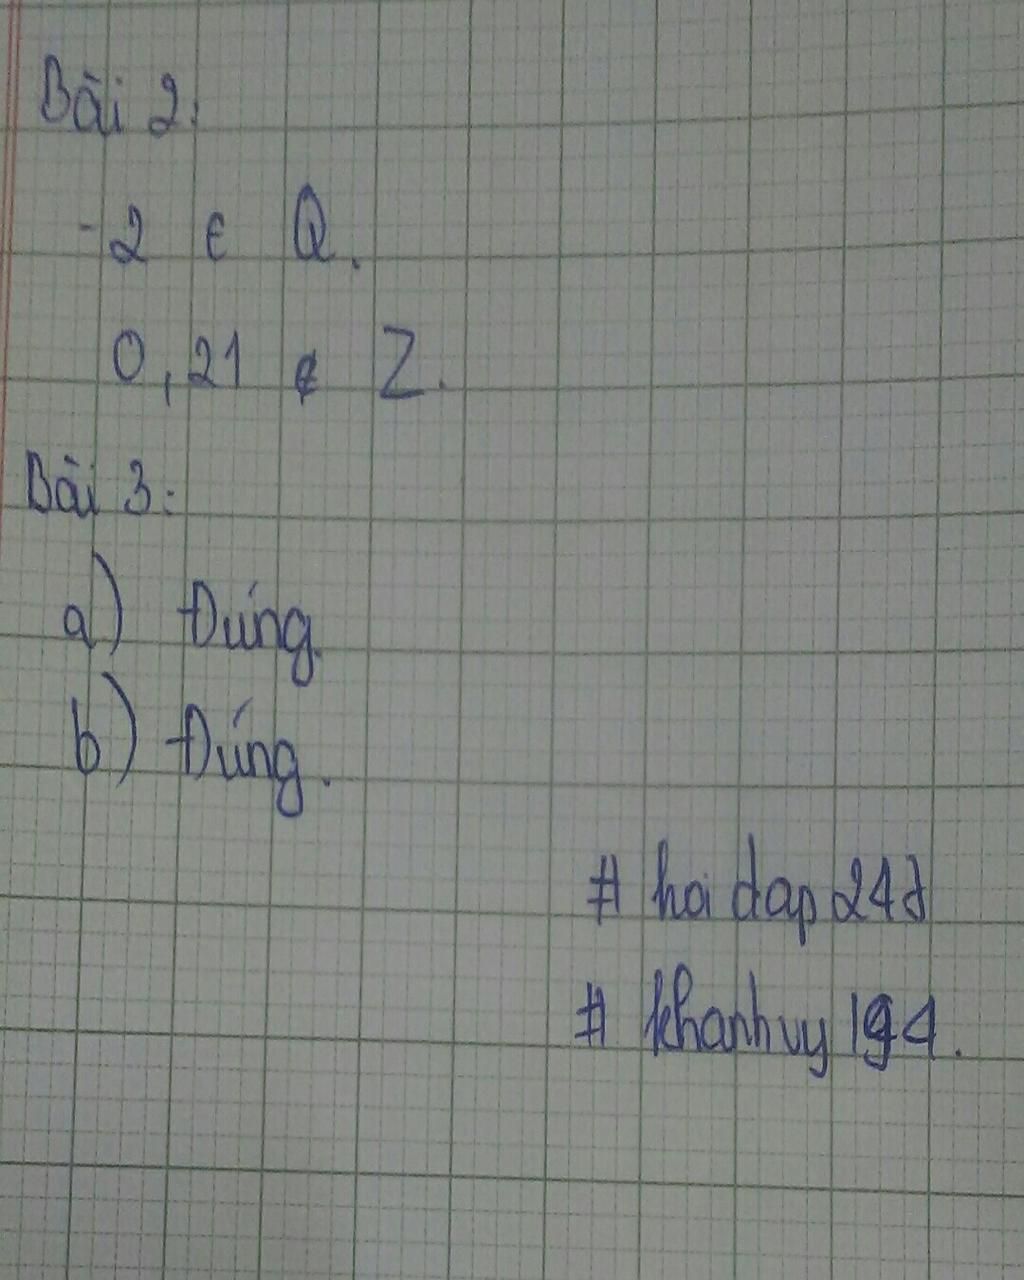 Bài 2:
-2 ∈ Q.
0,21 ∉ Z.
Bài 3:
a) Đúng.
b) Đúng.
# hoi dap 24d
# khanhvy 194.